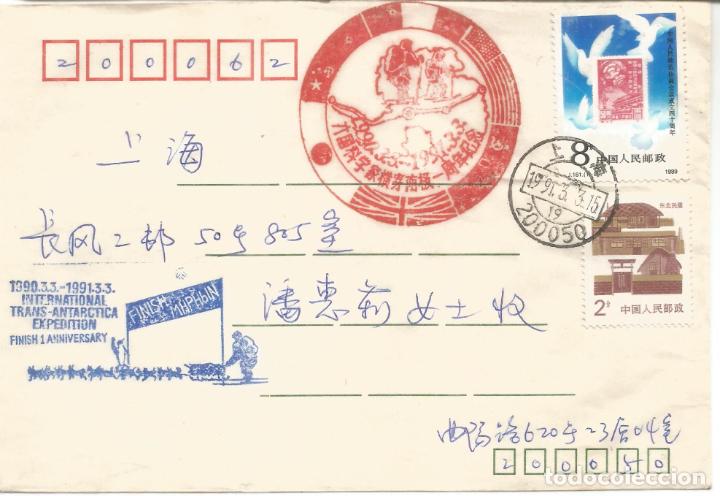 200062
1990.3.3-1991.3.3.
六国科学家横穿南极一周年纪念
上海
长风二邨50号805室
潘惠莉女士收
1990.3.3.-1991.3.3.
INTERNATIONAL
TRANS-ANTARCTICA
EXPEDITION
FINISH 1 ANNIVERSARY
FINISH
ФИНИШ
8分
中国人民邮政
J.161.(1-1)
1989
上海
1991.3.3.15
19
200050
东北民居
2分
中国人民邮政
曲阳路620弄23号04室
200050
todocoleccion